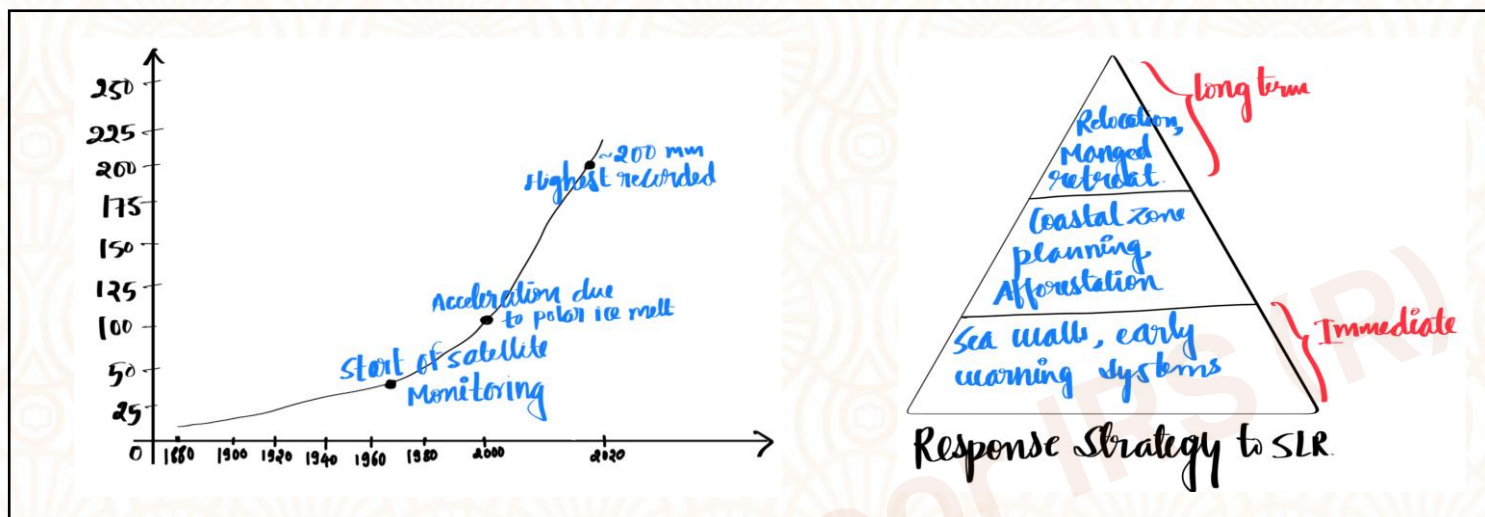 250
225
200
175
150
125
100
50
25
0
1880
1900
1920
1940
1960
1980
2000
2020
~200 mm
Highest recorded
Acceleration due
to polar ice melt
Start of satellite
Monitoring
Long term
Relocation,
Manged
retreat.
Coastal zone
planning,
Afforestation
Immediate
Sea walls, early
warning systems
Response Strategy to SLR.
IRS (R)